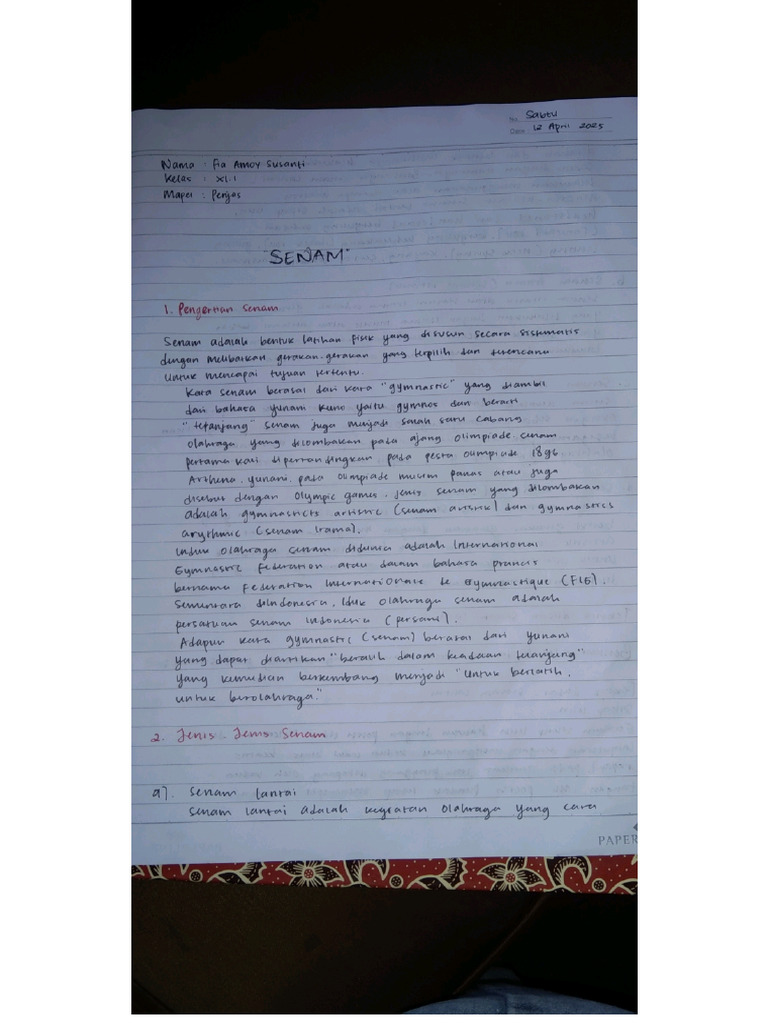 No: Sabtu
Date: 12 April 2025
Nama : Fia Amoy Susanti
Kelas : XI.1
Mapel : Penjas
"SENAM"
1. Pengertian senam
Senam adalah bentuk latihan fisik yang disusun secara sistematis
dengan melibatkan gerakan-gerakan yang terpilih dan terencana
untuk mencapai tujuan tertentu.
Kata senam berasal dari kata "gymnastic" yang diambil
dari bahasa yunani kuno yaitu gymnos dan berarti
"telanjang" senam juga menjadi salah satu cabang
olahraga yang dilombakan pada ajang olimpiade. senam
pertama kali dipertandingkan pada pesta olimpiade 1896
Arthena, yunani, pada olimpiade musim panas atau juga
disebut dengan Olympic games. jenis senam yang dilombakan
adalah gymnasticts artistic (senam artistik) dan gymnastics
arythmic (senam irama).
Induk olahraga senam didunia adalah International
Gymnastic Federation atau dalam bahasa prancis
bernama Federation Internationale de Gymnastique (FIG).
Sementara diIndonesia, Iduk olahraga senam adalah
persatuan senam Indonesia (persani).
Adapun kata gymnastic (senam) berasal dari yunani
yang dapat diartikan "beralih dalam keadaan telanjang"
yang kemudian berkembang menjadi "untuk berlatih,
untuk berolahraga."
2. Jenis-Jenis Senam
a). Senam lantai
Senam lantai adalah kegiatan olahraga yang cara
PAPER